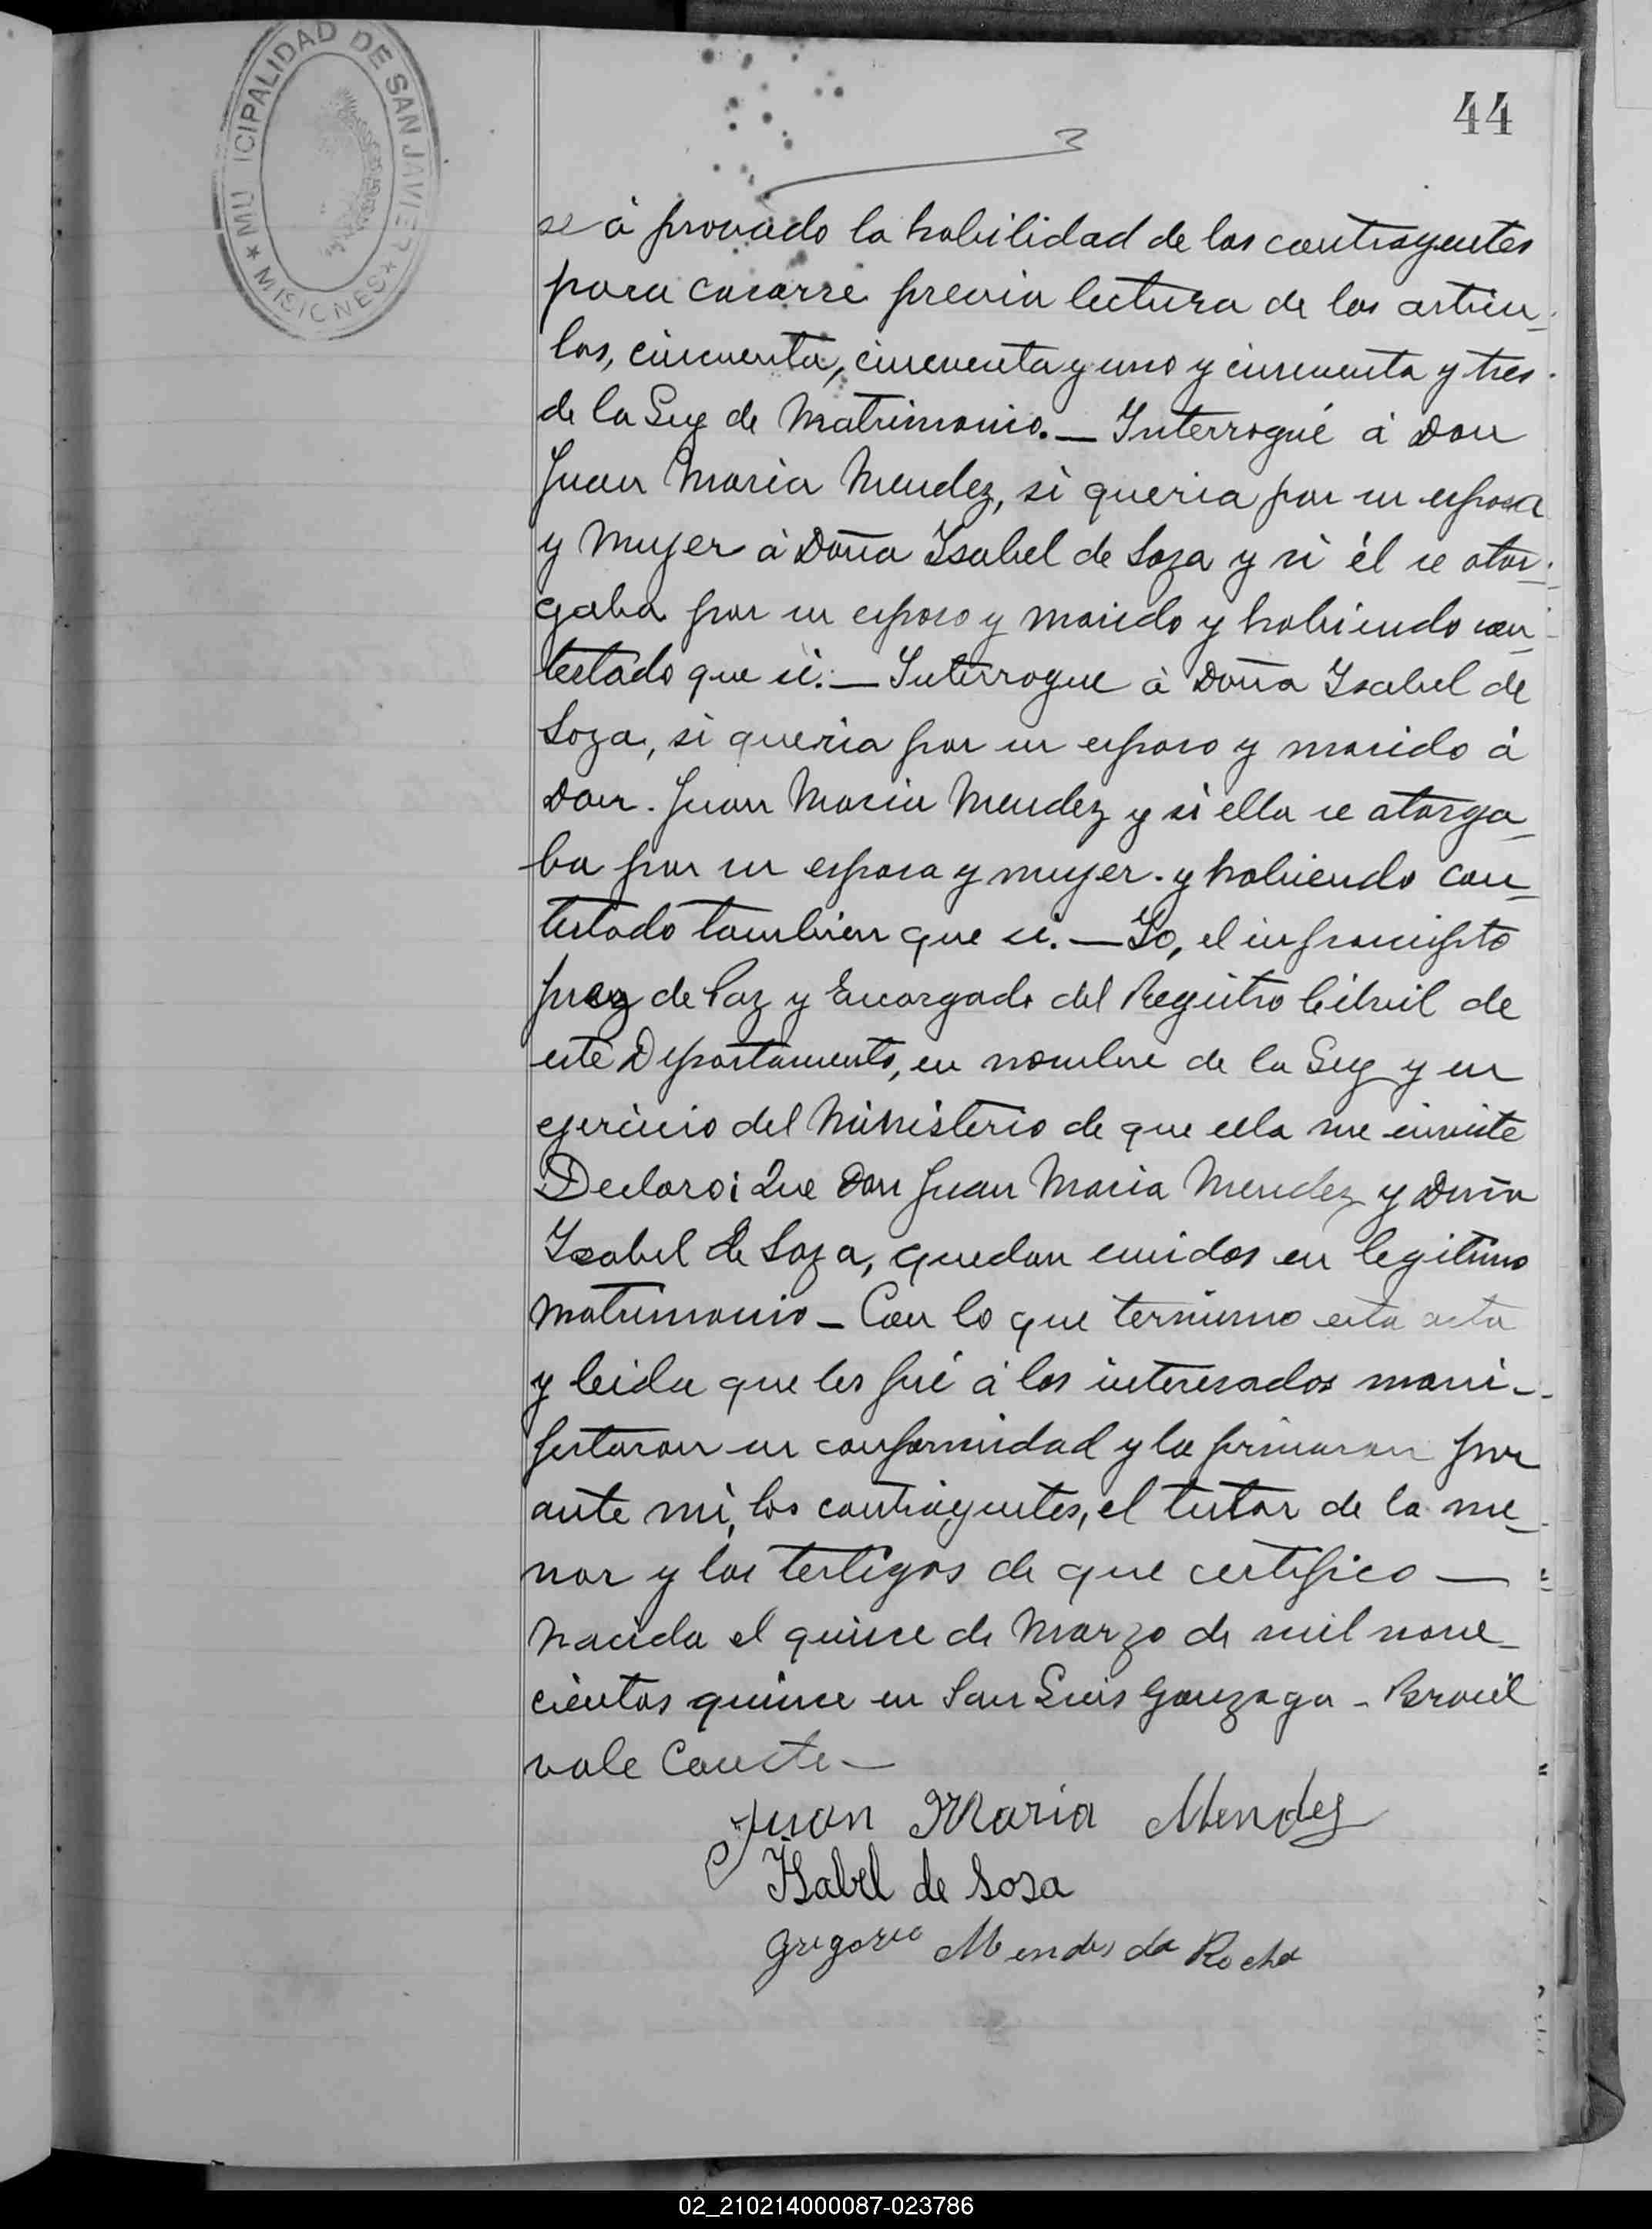 MU ICIPALIDAD DE SAN JAVIER
* MISIONES *
44
se à provado la habilidad de los contrayentes
para casarse previa lectura de los artícu_
los, cincuenta, cincuenta y uno y cincuenta y tres.
de la Ley de Matrimonio. — Interrogué á Don
Juan Maria Mendez, si queria por su esposa
y Mujer à Doña Isabel de Soza y si él se otor_
gaba por su esposo y marido y habiendo con_
testado que si. — Interrogue à Doña Isabel de
Soza, si queria por su esposo y marido á
Don. Juan Maria Mendez y si ella se otorga_
ba por su esposa y mujer. y habiendo con_
testado tambien que si. — Yo, el infrascripto
Juez de Paz y Encargado del Registro Civil de
este Departamento, en nombre de la Ley y en
ejercicio del Ministerio de que ella me inviste
Declaro: Que Don Juan Maria Mendez y Doña
Isabel de Soza, quedan unidos en legitimo
matrimonio _ Con lo que termino esta acta
y leida que les fué á los interesados mani_
festaron su conformidad y la firmaron por
ante mi, los contrayentes, el tutor de la me_
nor y los testigos de que certifico —
nacida el quince de Marzo de mil nove_
cientos quince en San Luis Gonzaga - Brasil
vale Conste —
Juan Maria Mendez
Isabel de Sosa
Gregorio Mendes da Rocha
02_210214000087-023786